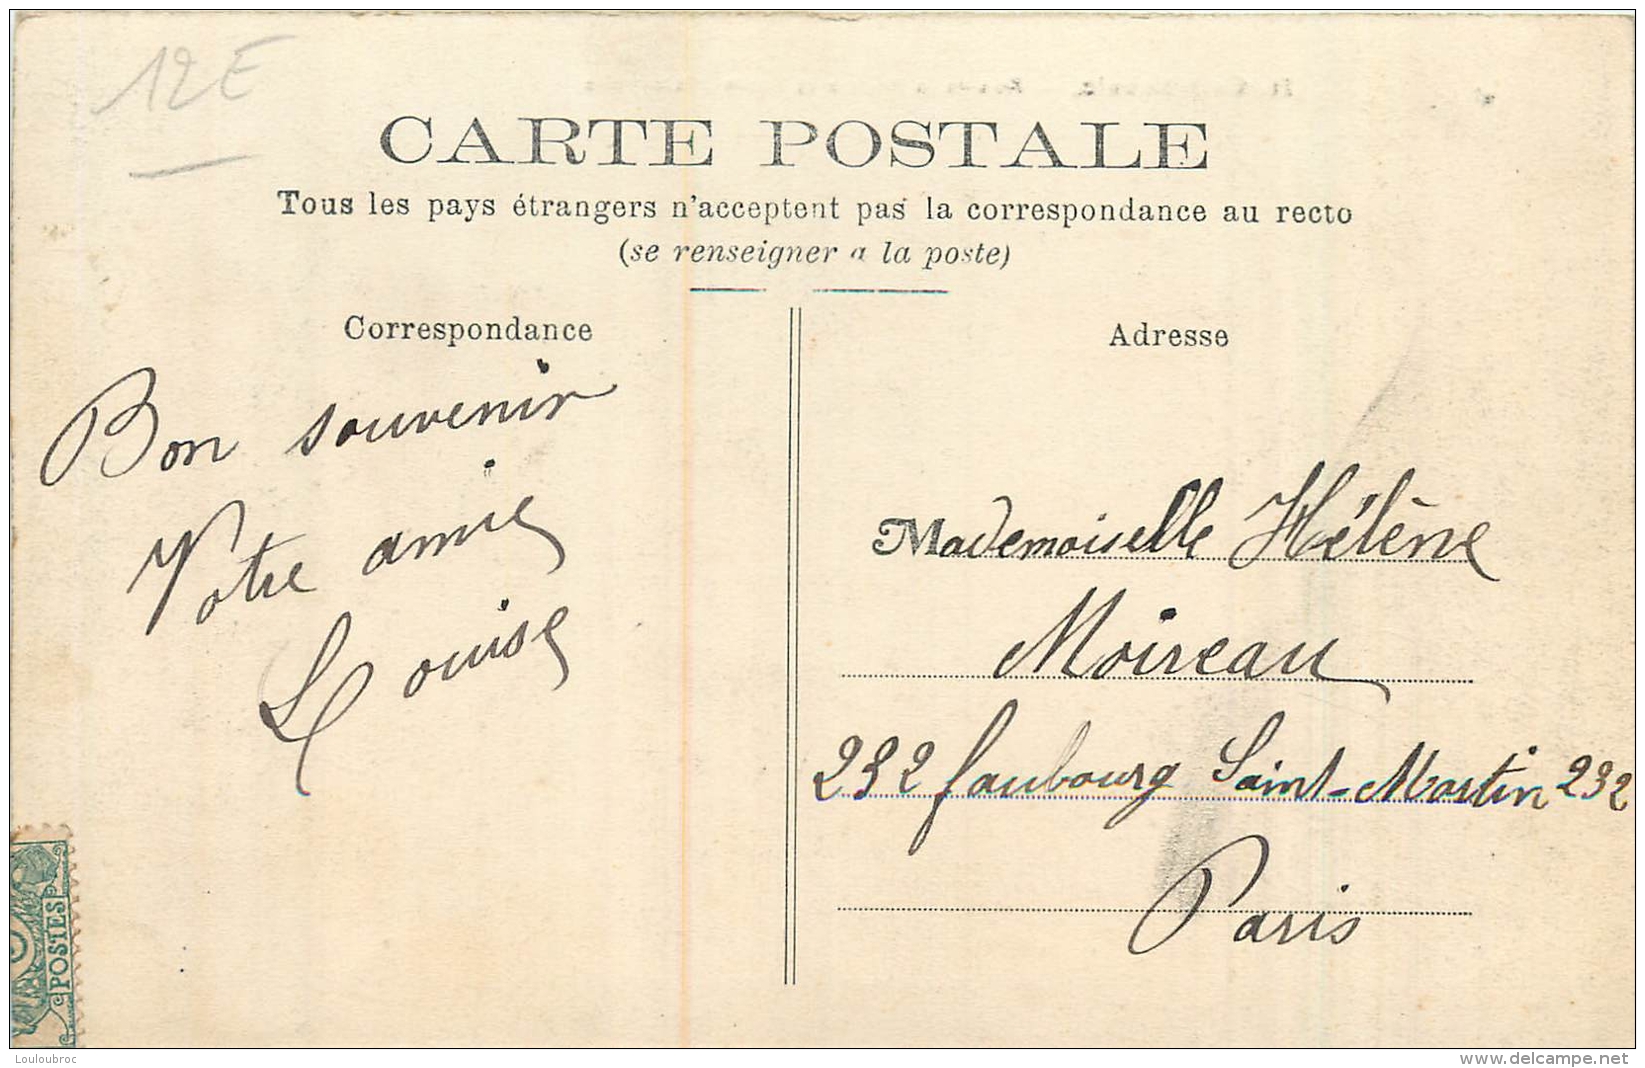 12E
CARTE POSTALE
Tous les pays étrangers n'acceptent pas la correspondance au recto
(se renseigner a la poste)
Correspondance
Bon souvenir
Votre amie
Louise
Adresse
Mademoiselle Hélène
Moireau
232 faubourg Saint-Martin 232
Paris
POSTES
Louloubroc
www.delcampe.net